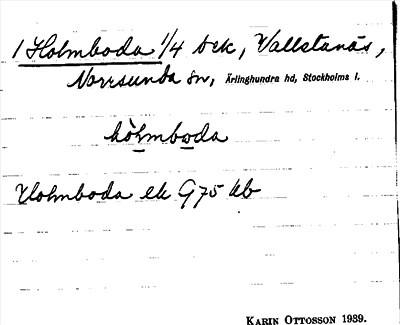 1 Holmboda 1/4 bek, Vallstanäs,
Norrsunda sn, Ärlinghundra hd, Stockholms l.
hòlmboda
Holmboda ek G75 kb
KARIN OTTOSSON 1939.